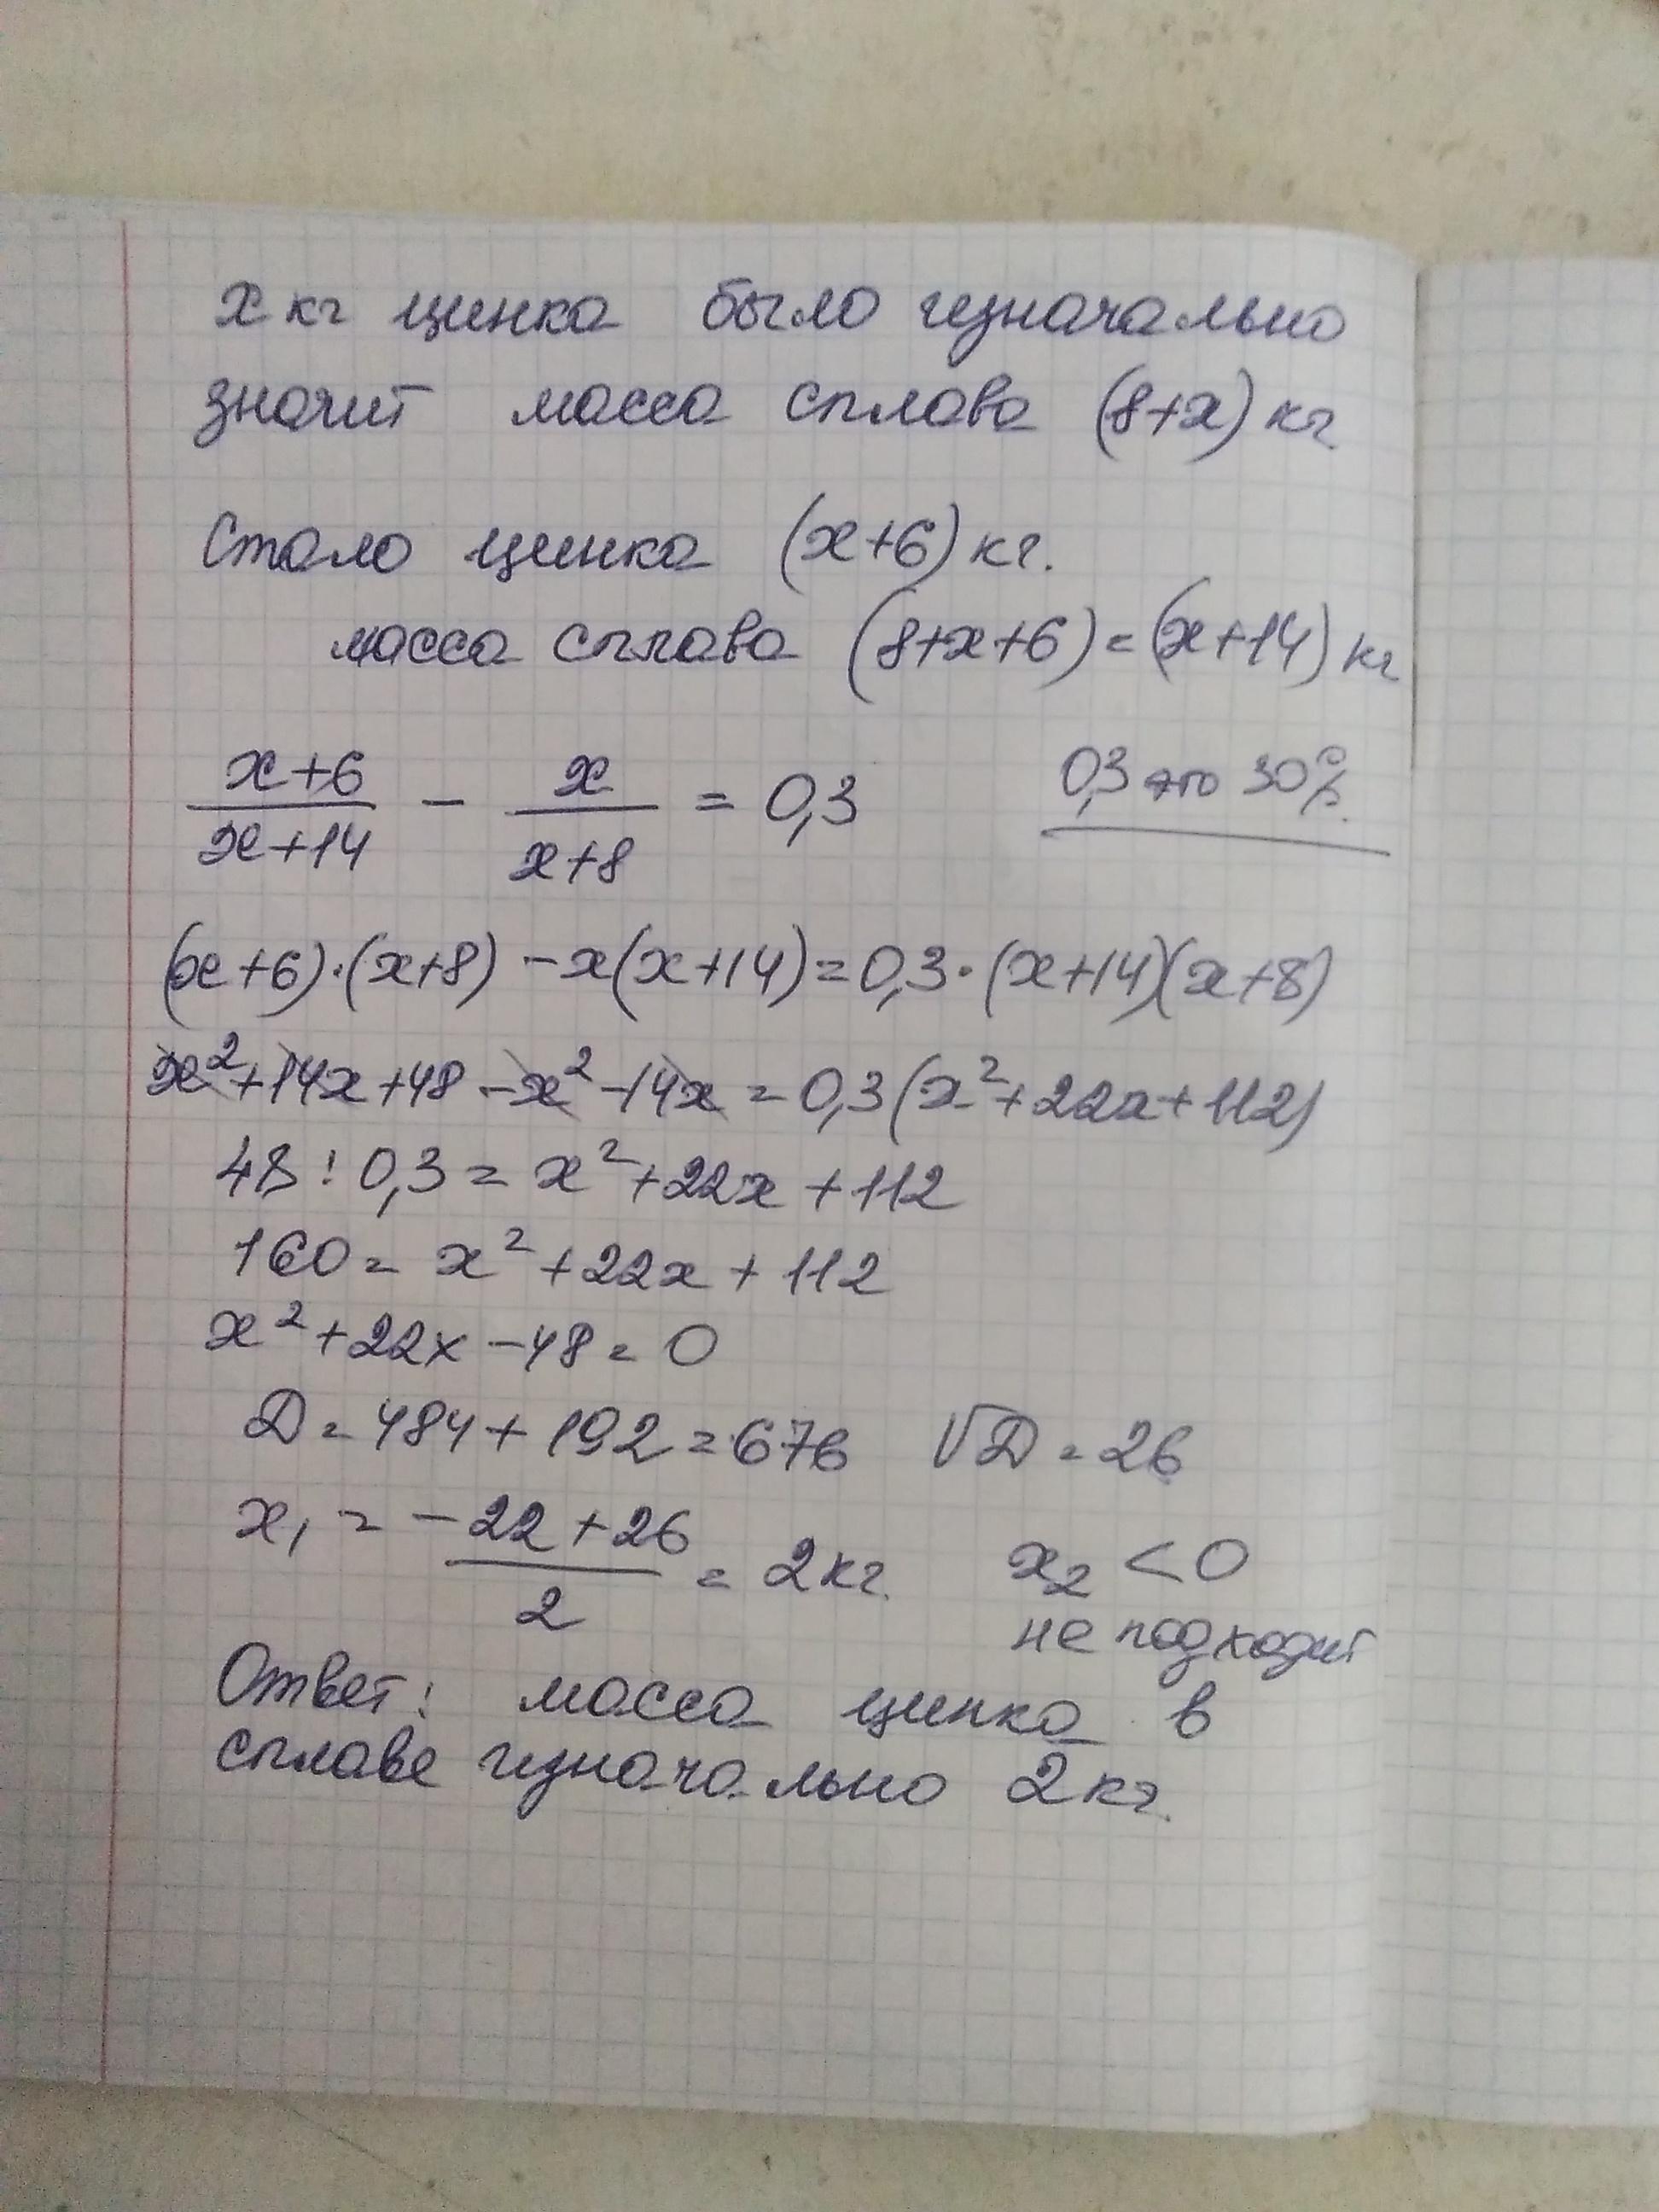 x кг цинка было изначально
значит масса сплава (8+x) кг
Стало цинка (x+6) кг.
масса сплава (8+x+6) = (x+14) кг
x+6/x+14 - x/x+8 = 0,3
0,3 это 30%.
(x+6)·(x+8) - x(x+14) = 0,3·(x+14)(x+8)
x²+14x+48-x²-14x = 0,3(x²+22x+112)
48:0,3 = x²+22x+112
160 = x²+22x+112
x²+22x-48=0
D=484+192=676 √D=26
x₁ = -22+26/2 = 2 кг. x₂ <0
не подходит
Ответ: масса цинка в
сплаве изначально 2 кг.